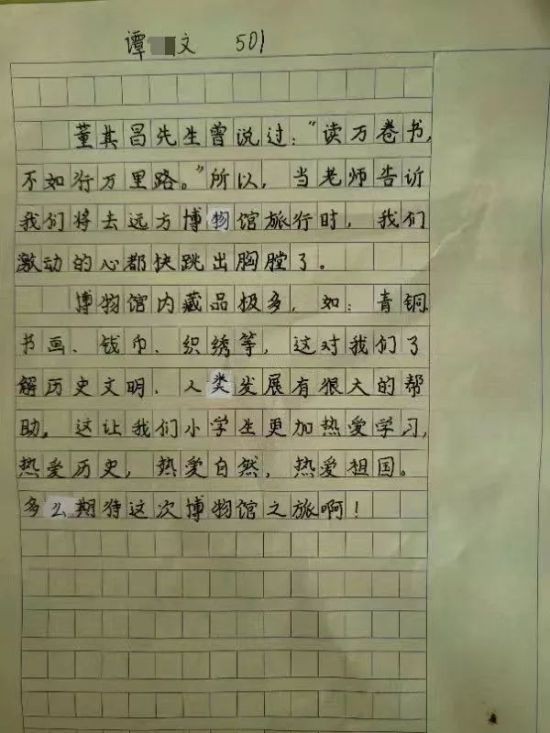 谭 文 501
董其昌先生曾说过：“读万卷书，
不如行万里路。”所以，当老师告诉
我们将去远方博物馆旅行时，我们
激动的心都快跳出胸膛了。
博物馆内藏品极多，如：青铜
书画、钱币、织绣等，这对我们了
解历史文明、人类发展有狠大的帮
助。这让我们小学生更加热爱学习，
热爱历史，热爱自然，热爱祖国。
多么期待这次博物馆之旅啊！